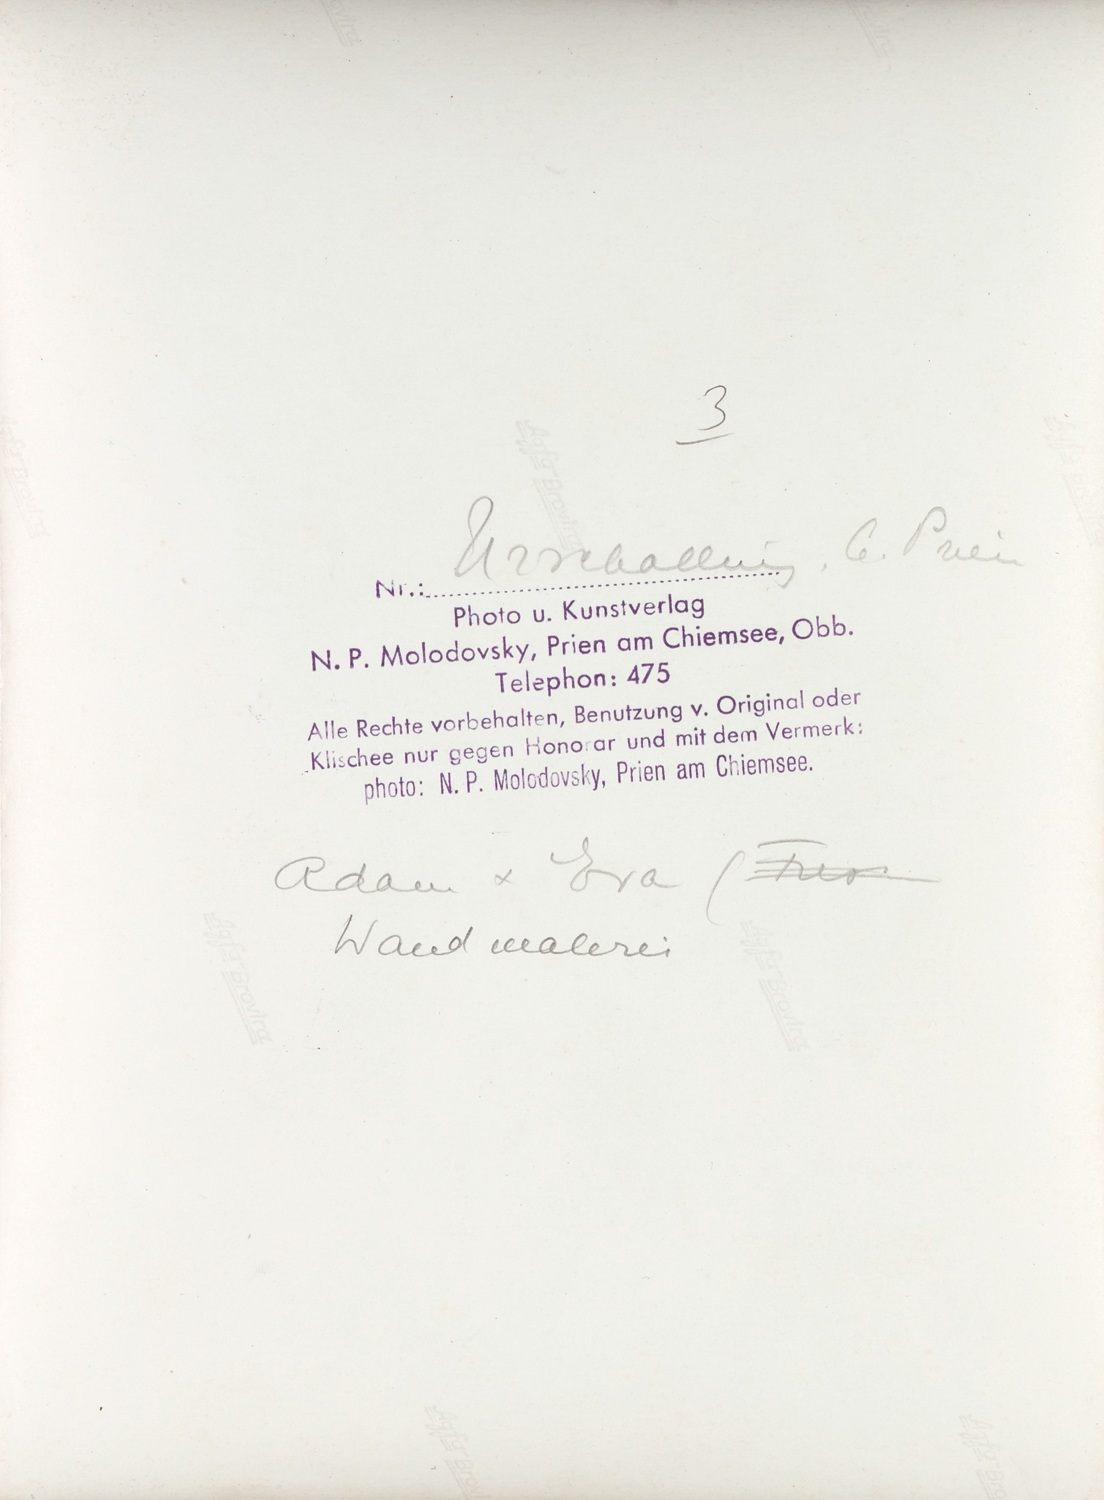 3
Urschalling, b. Prien
Nr.:
Photo u. Kunstverlag
N. P. Molodovsky, Prien am Chiemsee, Obb.
Telephon: 475
Alle Rechte vorbehalten, Benutzung v. Original oder
Klischee nur gegen Honorar und mit dem Vermerk:
photo: N. P. Molodovsky, Prien am Chiemsee.
Adam x Eva (
Wandmalerei
Agfa Brovira
Agfa Brovira
Agfa Brovira